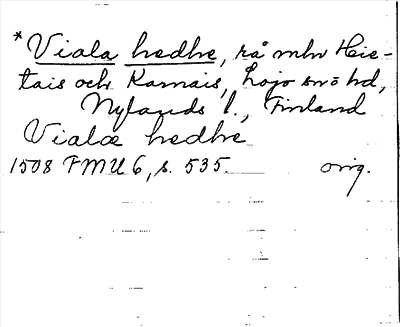 *Viala hedhe, rå mlw Hie-
tais och Karnais, Lojo snö hd,
Nylands l., Finland
Vialæ hedhe
1508 FMU 6, s. 535. orig.